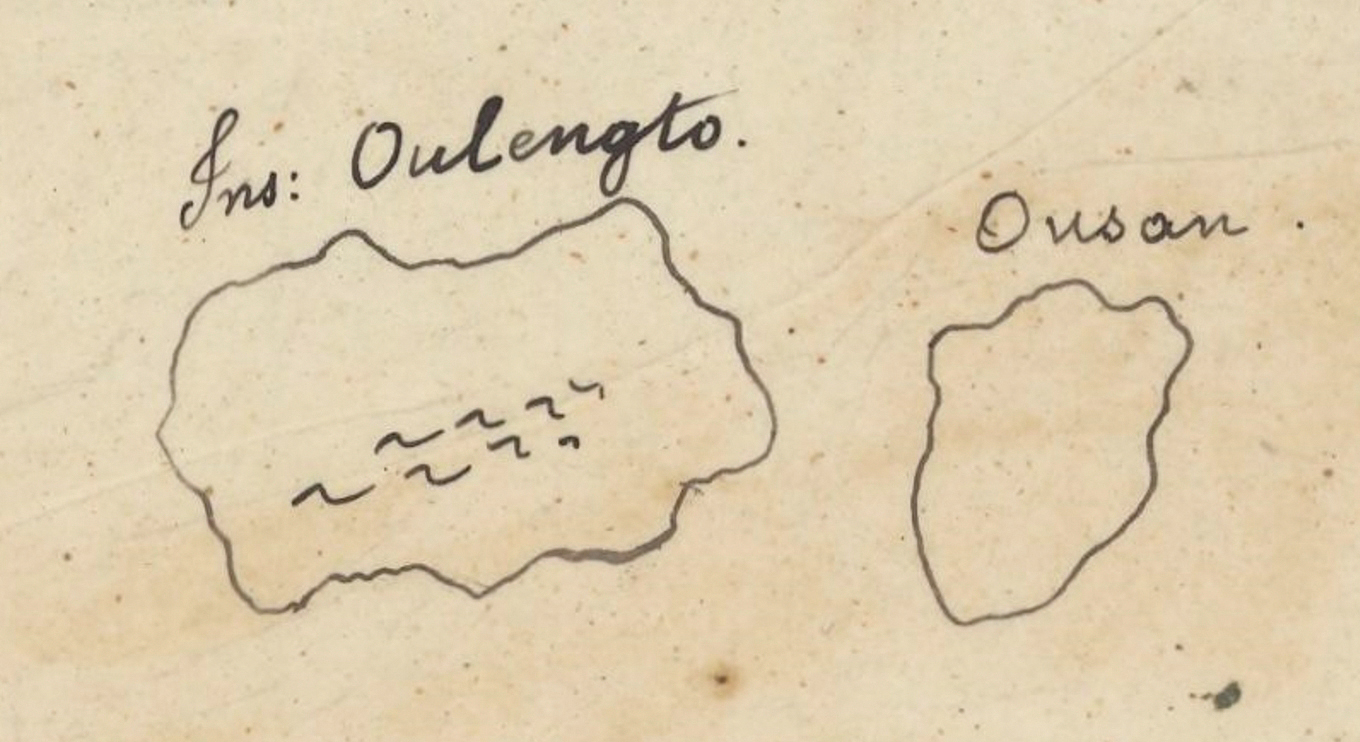 Ins: Oulengto.
Ousan.